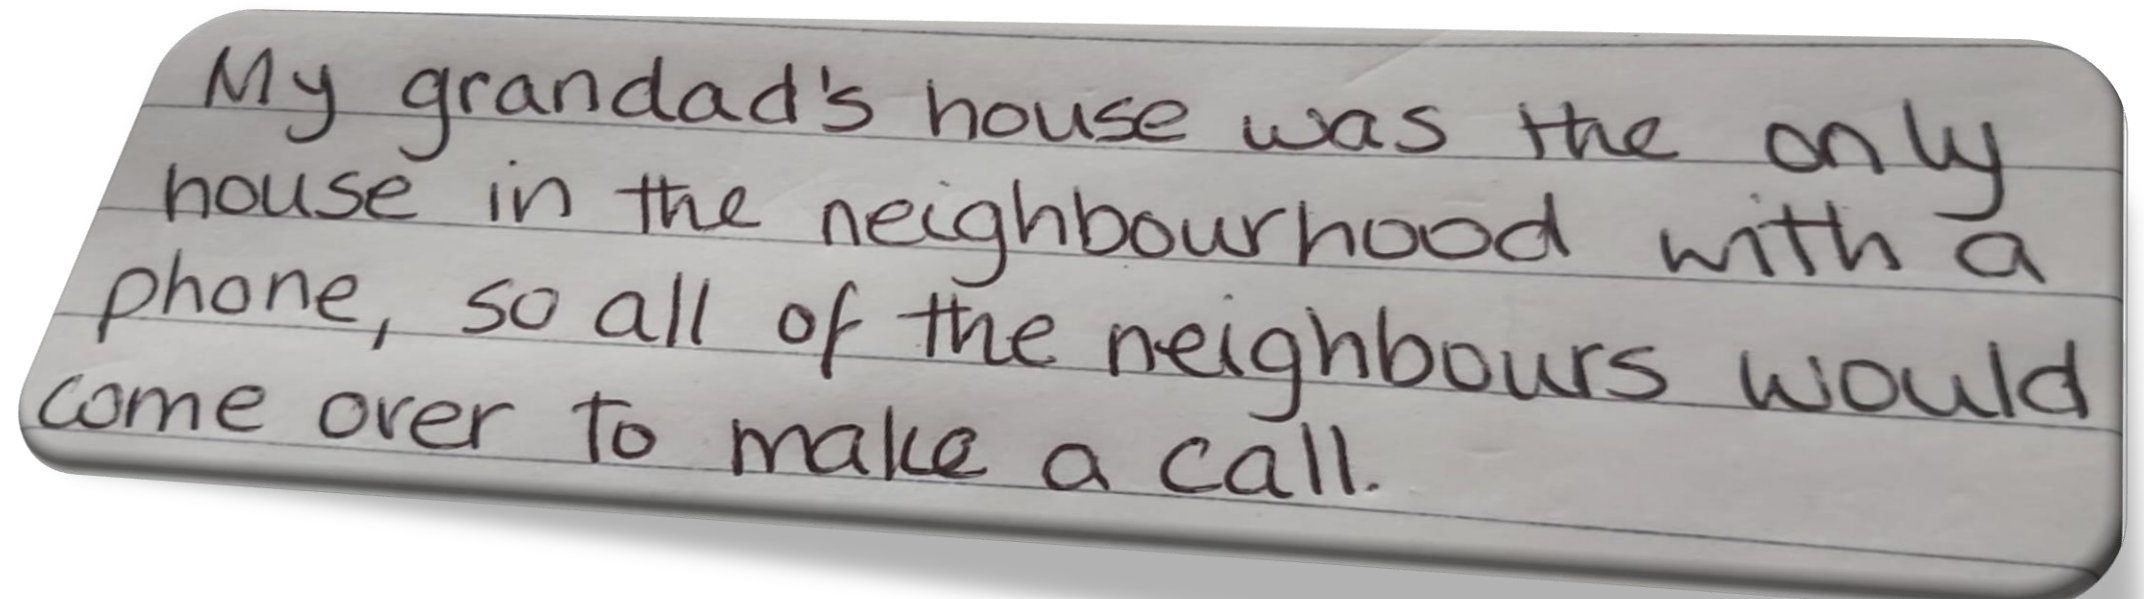 My grandad's house was the only
house in the neighbourhood with a
phone, so all of the neighbours would
come over to make a call.